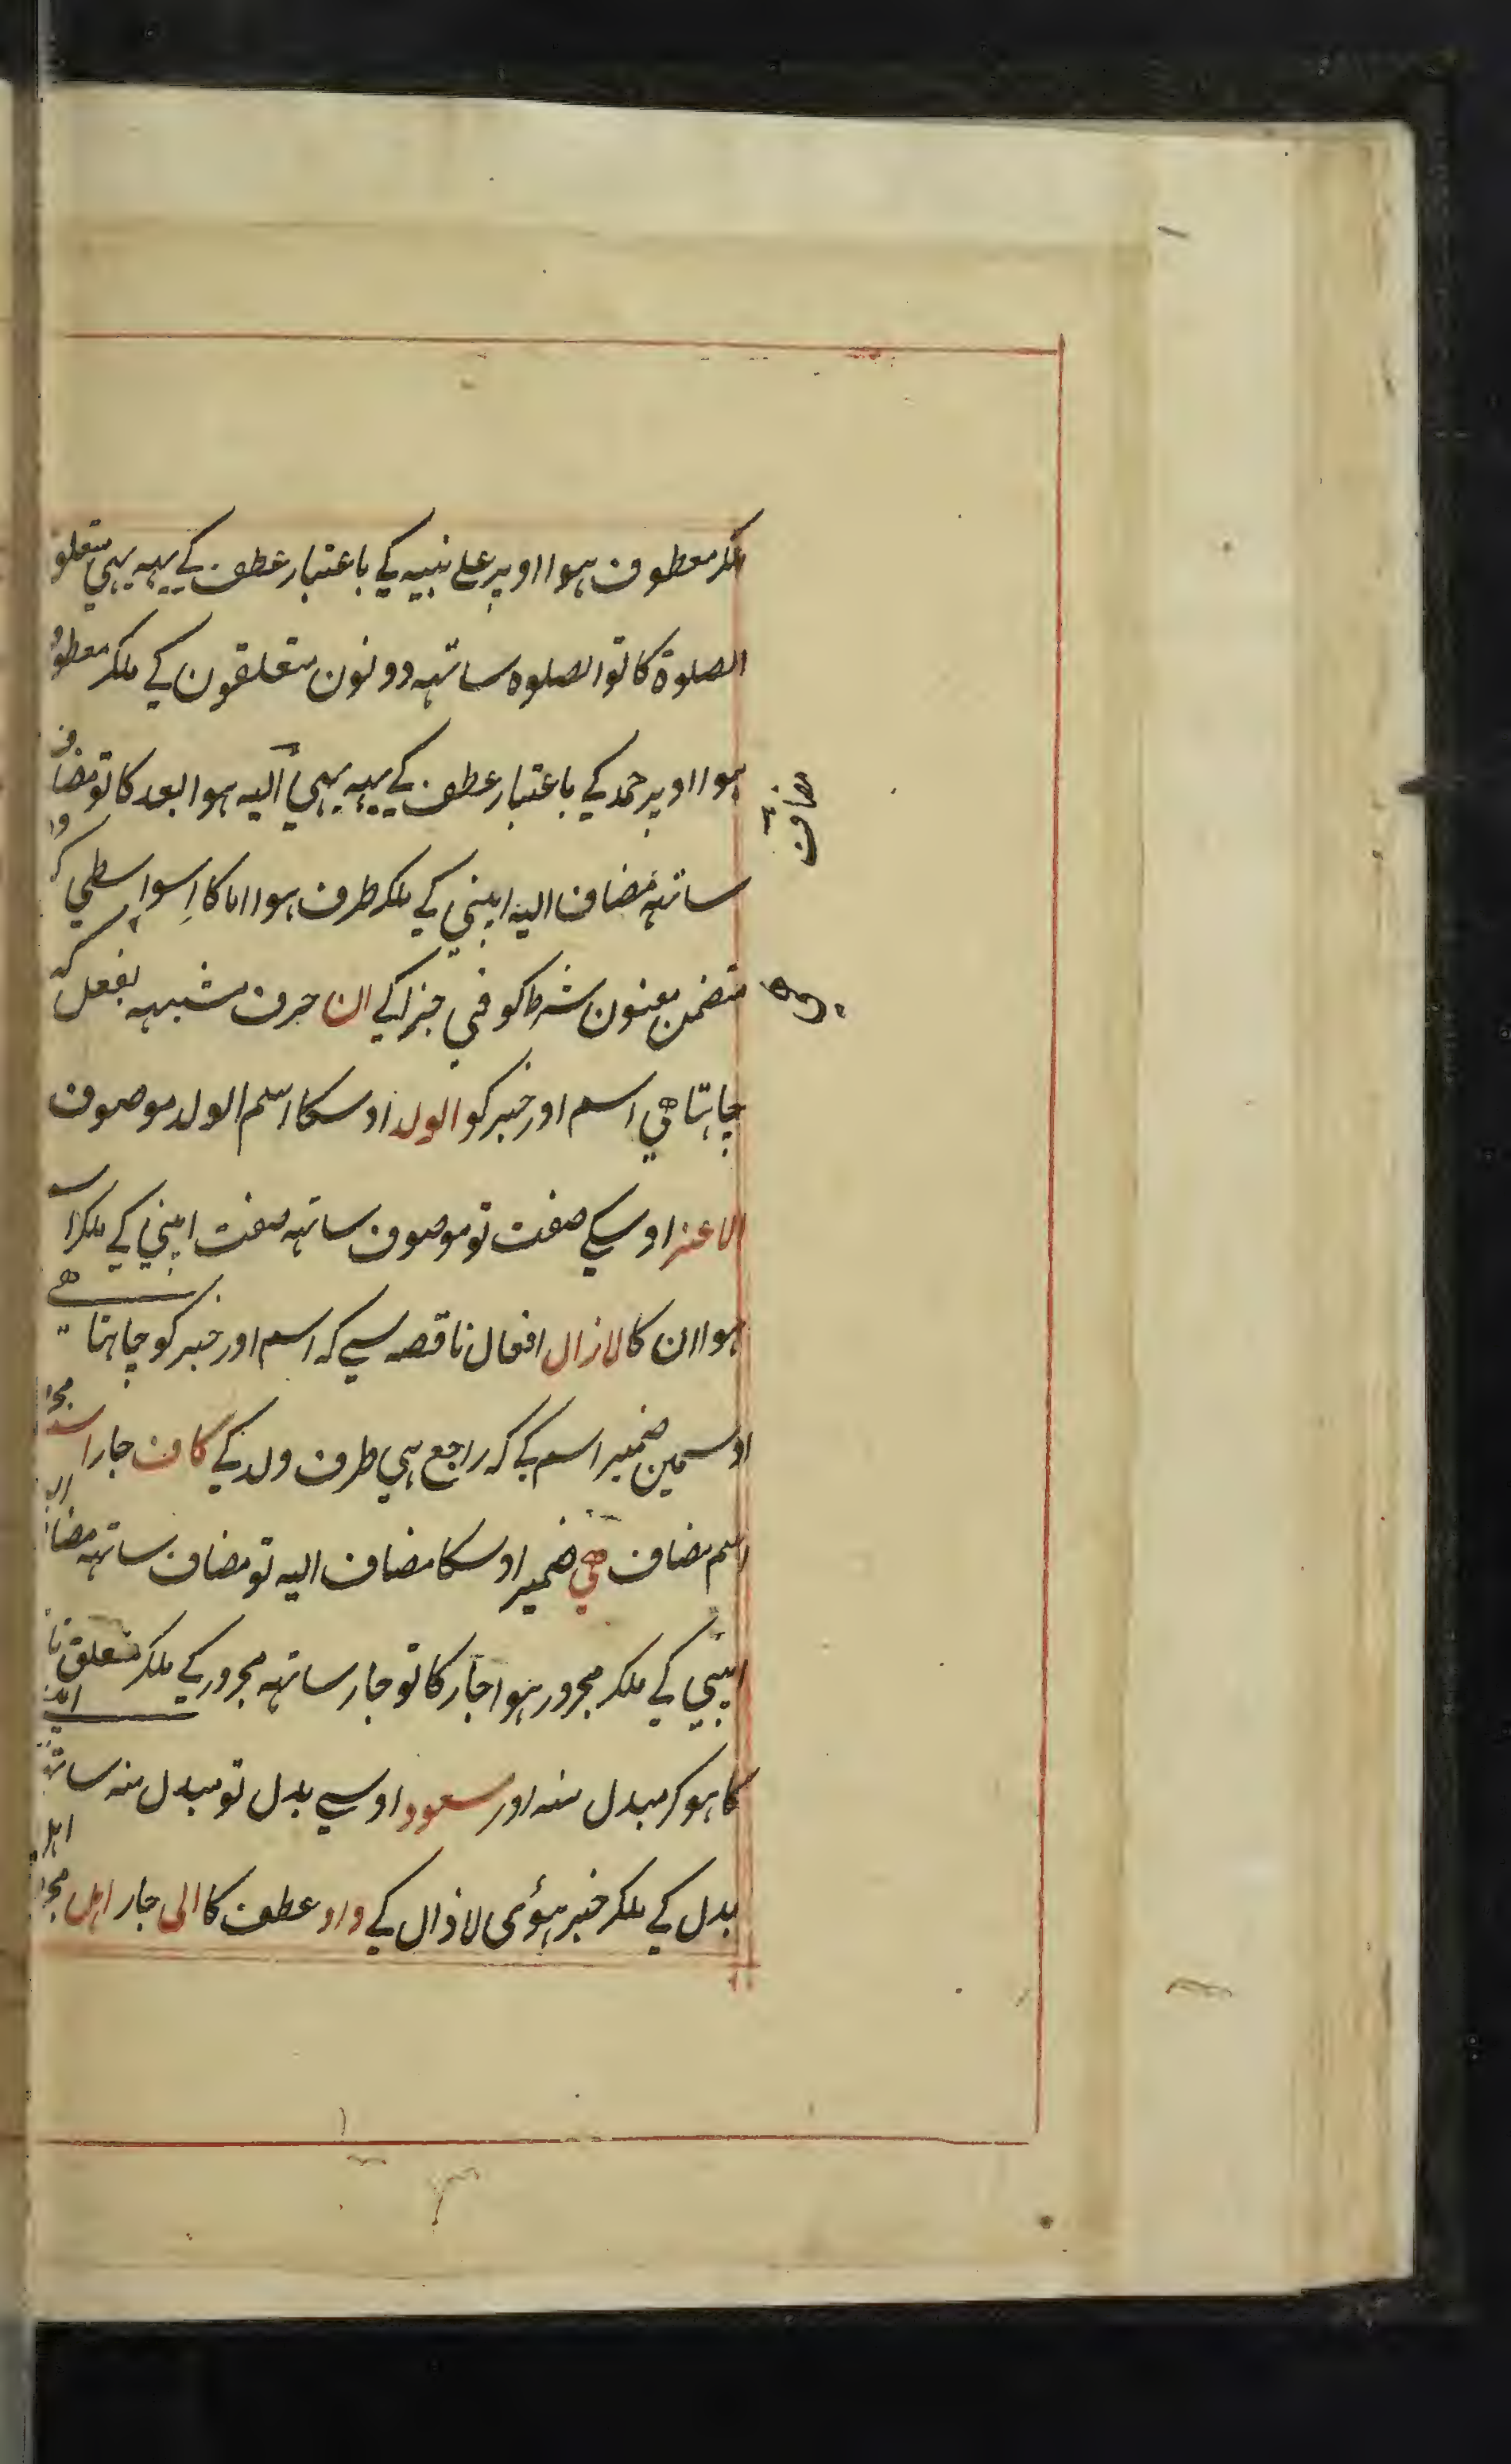 ملکر معطوف ہوا اوپر علے نبیہ کے باعتبار عطف کے یہہ بہی متعلق
الصلوة کا تو الصلوہ ساتہہ دونون متعلقون کے ملکر معطوف
ہوا اوپر حمد کے باعتبار عطف کے یہہ بہی الیہ ہوا بعد کا تو مضاف
مضاف
ساتہہ مضاف الیہ اپنی کے ملکر ظرف ہوا اما کا اسواسطے کہ
متضمن معنون شرط کو فی جزا کے ان حرف مشبہہ بفعل کہ
چاہتا ہی اسم اور خبر کو الولد اوسکا اسم الولد موصوف
الاعز اوسکے صفت تو موصوف ساتہہ صفت اپنی کے ملکر اسم
ہوا ان کا لازال افعال ناقصہ سے کہ اسم اور خبر کو چاہتا ہے
اوسمین ضمیر اسم کے کہ راجع ہی طرف ولد کے کاف جار
اسم مضاف ہی ضمیر اوسکا مضاف الیہ تو مضاف ساتہہ مضاف الیہ
اپنی کے ملکر مجرور ہوا جار کا تو جار ساتہہ مجرور کے ملکر متعلق
کا ہوکر مبدل منہ اور مسعود اوسے بدل تو مبدل منہ ساتہہ
بدل کے ملکر خبر ہوئی لاذال کے واو عطف کا الی جار اہل